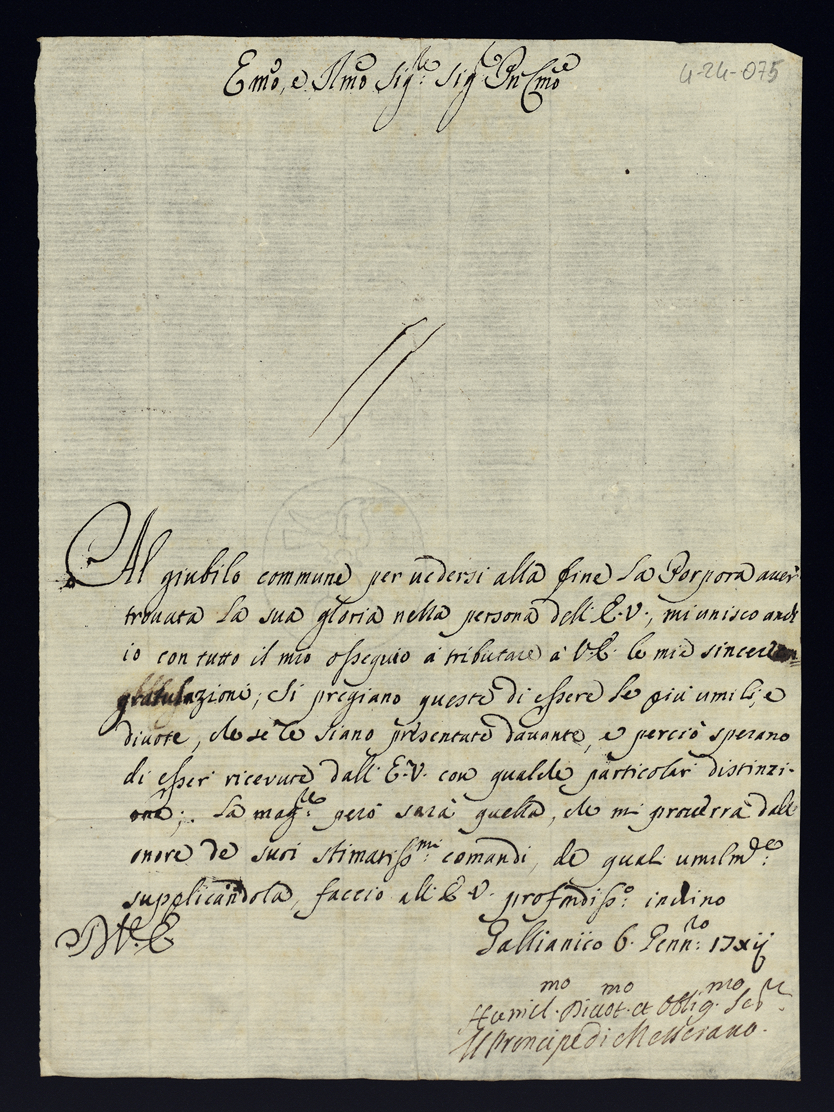 4-24-075
Emo, e Rmo Sigre Sigr Pn Cmo
Al giubilo commune per uedersi alla fine la Porpora aver
trouata la sua gloria nella persona dell' E.V., mi unisco anch
io con tutto il mio ossequio à tributare à V.E. le mie sincere
gratulazioni; si pregiano queste di essere le più umili, e
diuote, che se le siano presentate davante, e perciò sperano
di esser riceuute dall' E.V. con qualche particolar distinzi-
one; la magre però sarà quella, che mi prouerrà dall'
onore de suoi stimatissmi comandi, de quali umilmte
supplicandola, faccio all' E.V. profondisso inchino
D V.E.
Gallianico 6. Gennro 17xij
Humilmo Diuotmo et Obligmo Sers
Il Principe di Messerano.